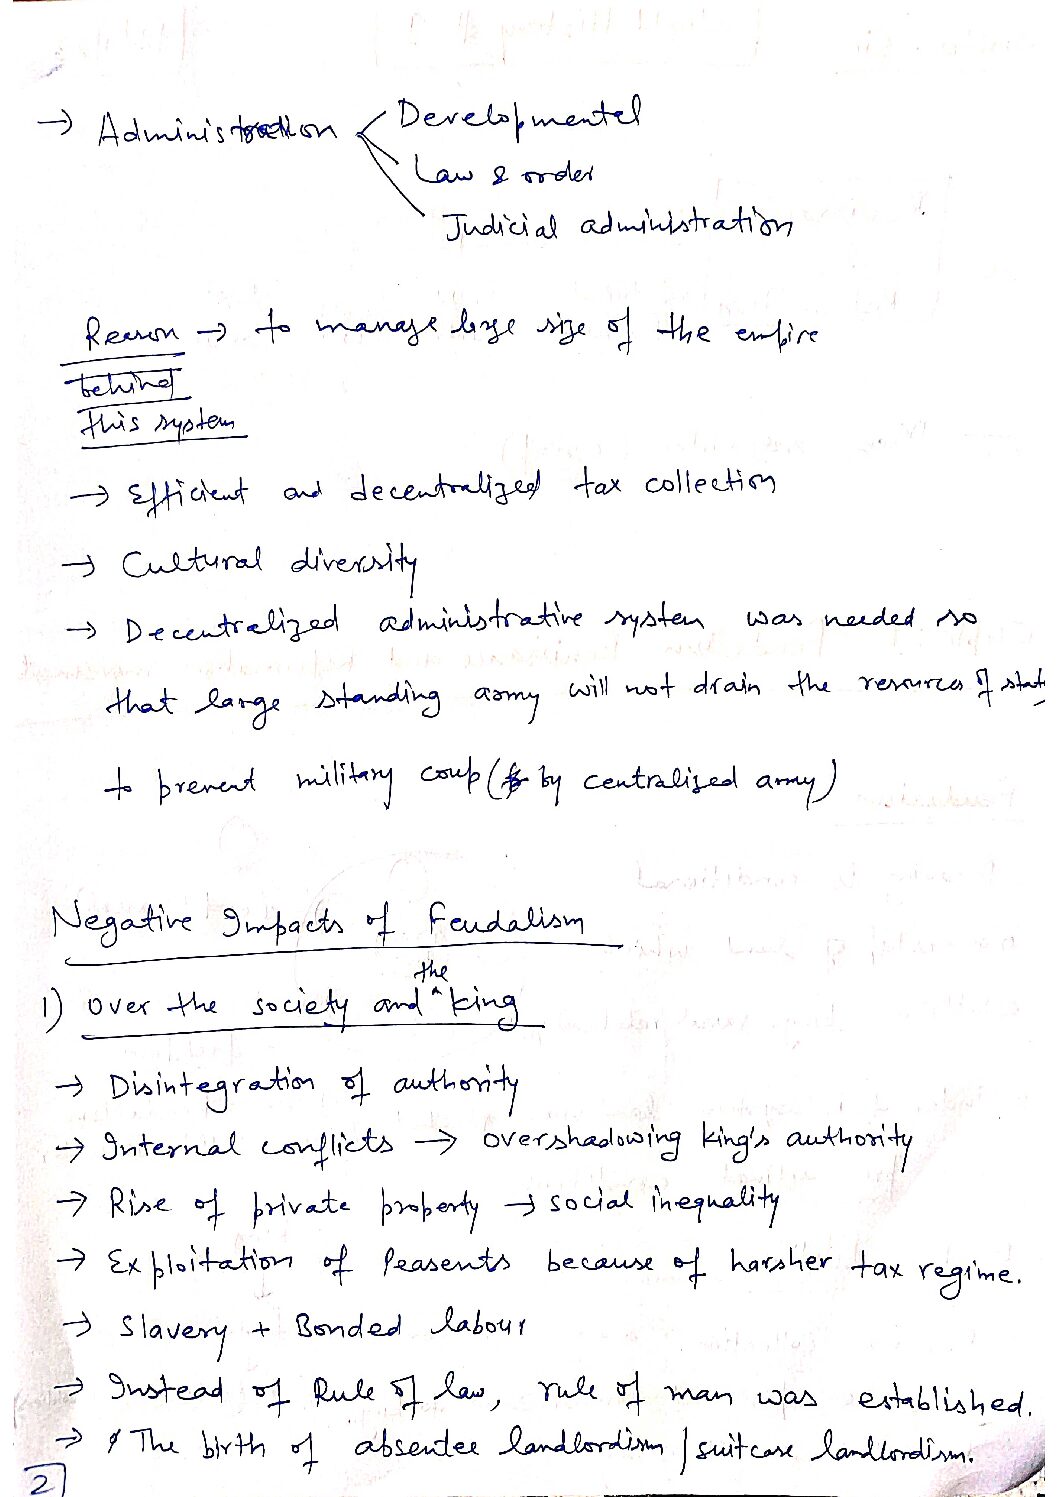 → Administration < Developmental
Law & order
Judicial administration
Reason → to manage large size of the empire
behind
this system
→ Efficient and decentralized tax collection
→ Cultural diversity
→ Decentralized administrative system was needed so
that large standing army will not drain the resources of state
to prevent military coup (by centralized army)
Negative Impacts of Feudalism
1) over the society and ^the king
→ Disintegration of authority
→ Internal conflicts → overshadowing king's authority
→ Rise of private property → social inequality
→ Exploitation of Peasents because of harsher tax regime.
→ Slavery + Bonded labour
→ Instead of Rule of law, rule of man was established.
→ The birth of absentee landlordism / suitcase landlordism.
2